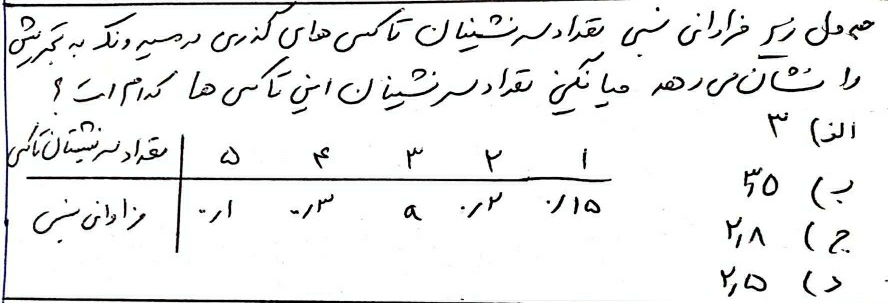 جدول زیر فراوانی نسبی تعداد سرنشینان تاکسی های گذری در مسیر ونک به تجریش
را نشان می دهد میانگین تعداد سرنشینان این تاکسی ها کدام است ؟
الف) ۳
ب) ۳٫۵
ج) ۲٫۸
د) ۲٫۵
تعداد سرنشینان تاکسی | ۵ ۴ ۳ ۲ ۱
فراوانی نسبی | ۰٫۱ ۰٫۳ a ۰٫۲ ۰٫۱۵